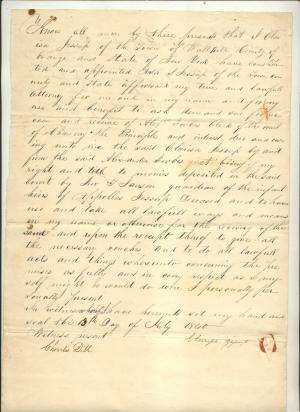 Know all men by these presents that I Cla
issa Jessup of the Town of Wallkill County of
Orange and State of New York have constitu
ted and appointed Ezra Jessup of the Town
unty and State afforesaid my true and lawfull
Attorney for me and in my name and for my
use and benefit to ask demand sue for
and receive of Alexander Forbes Clerk of the court
of the Principle and interest due and ow
ing unto me the said Clarissa Jessup by and
from the said Alexander Forbes being my
right and title to monies deposited in the said
court by guardian of the infant
heirs of Jessup Deceased and to have
use and take all lawfull ways and means
in my name or otherwise for the recovery of the
same and upon the receipt thereof to give all
the necessary vouches and to do all lawfull
acts and things whatsoever concerning the pre
mises as fully and in every respect as I my
self might or would do were I personally per
sonally present
In witness whereof I have hereunto set my hand and
seal the 13th Day of July 1840
Witness present
Charles Dill
Clarissa Jessup